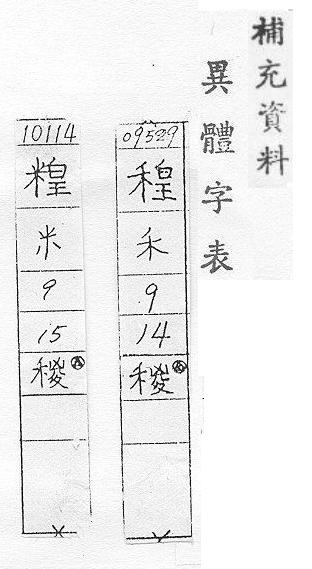 補充資料
異體字表
09529
䅣
禾
9
14
稯
10114
糧
米
9
15
稯